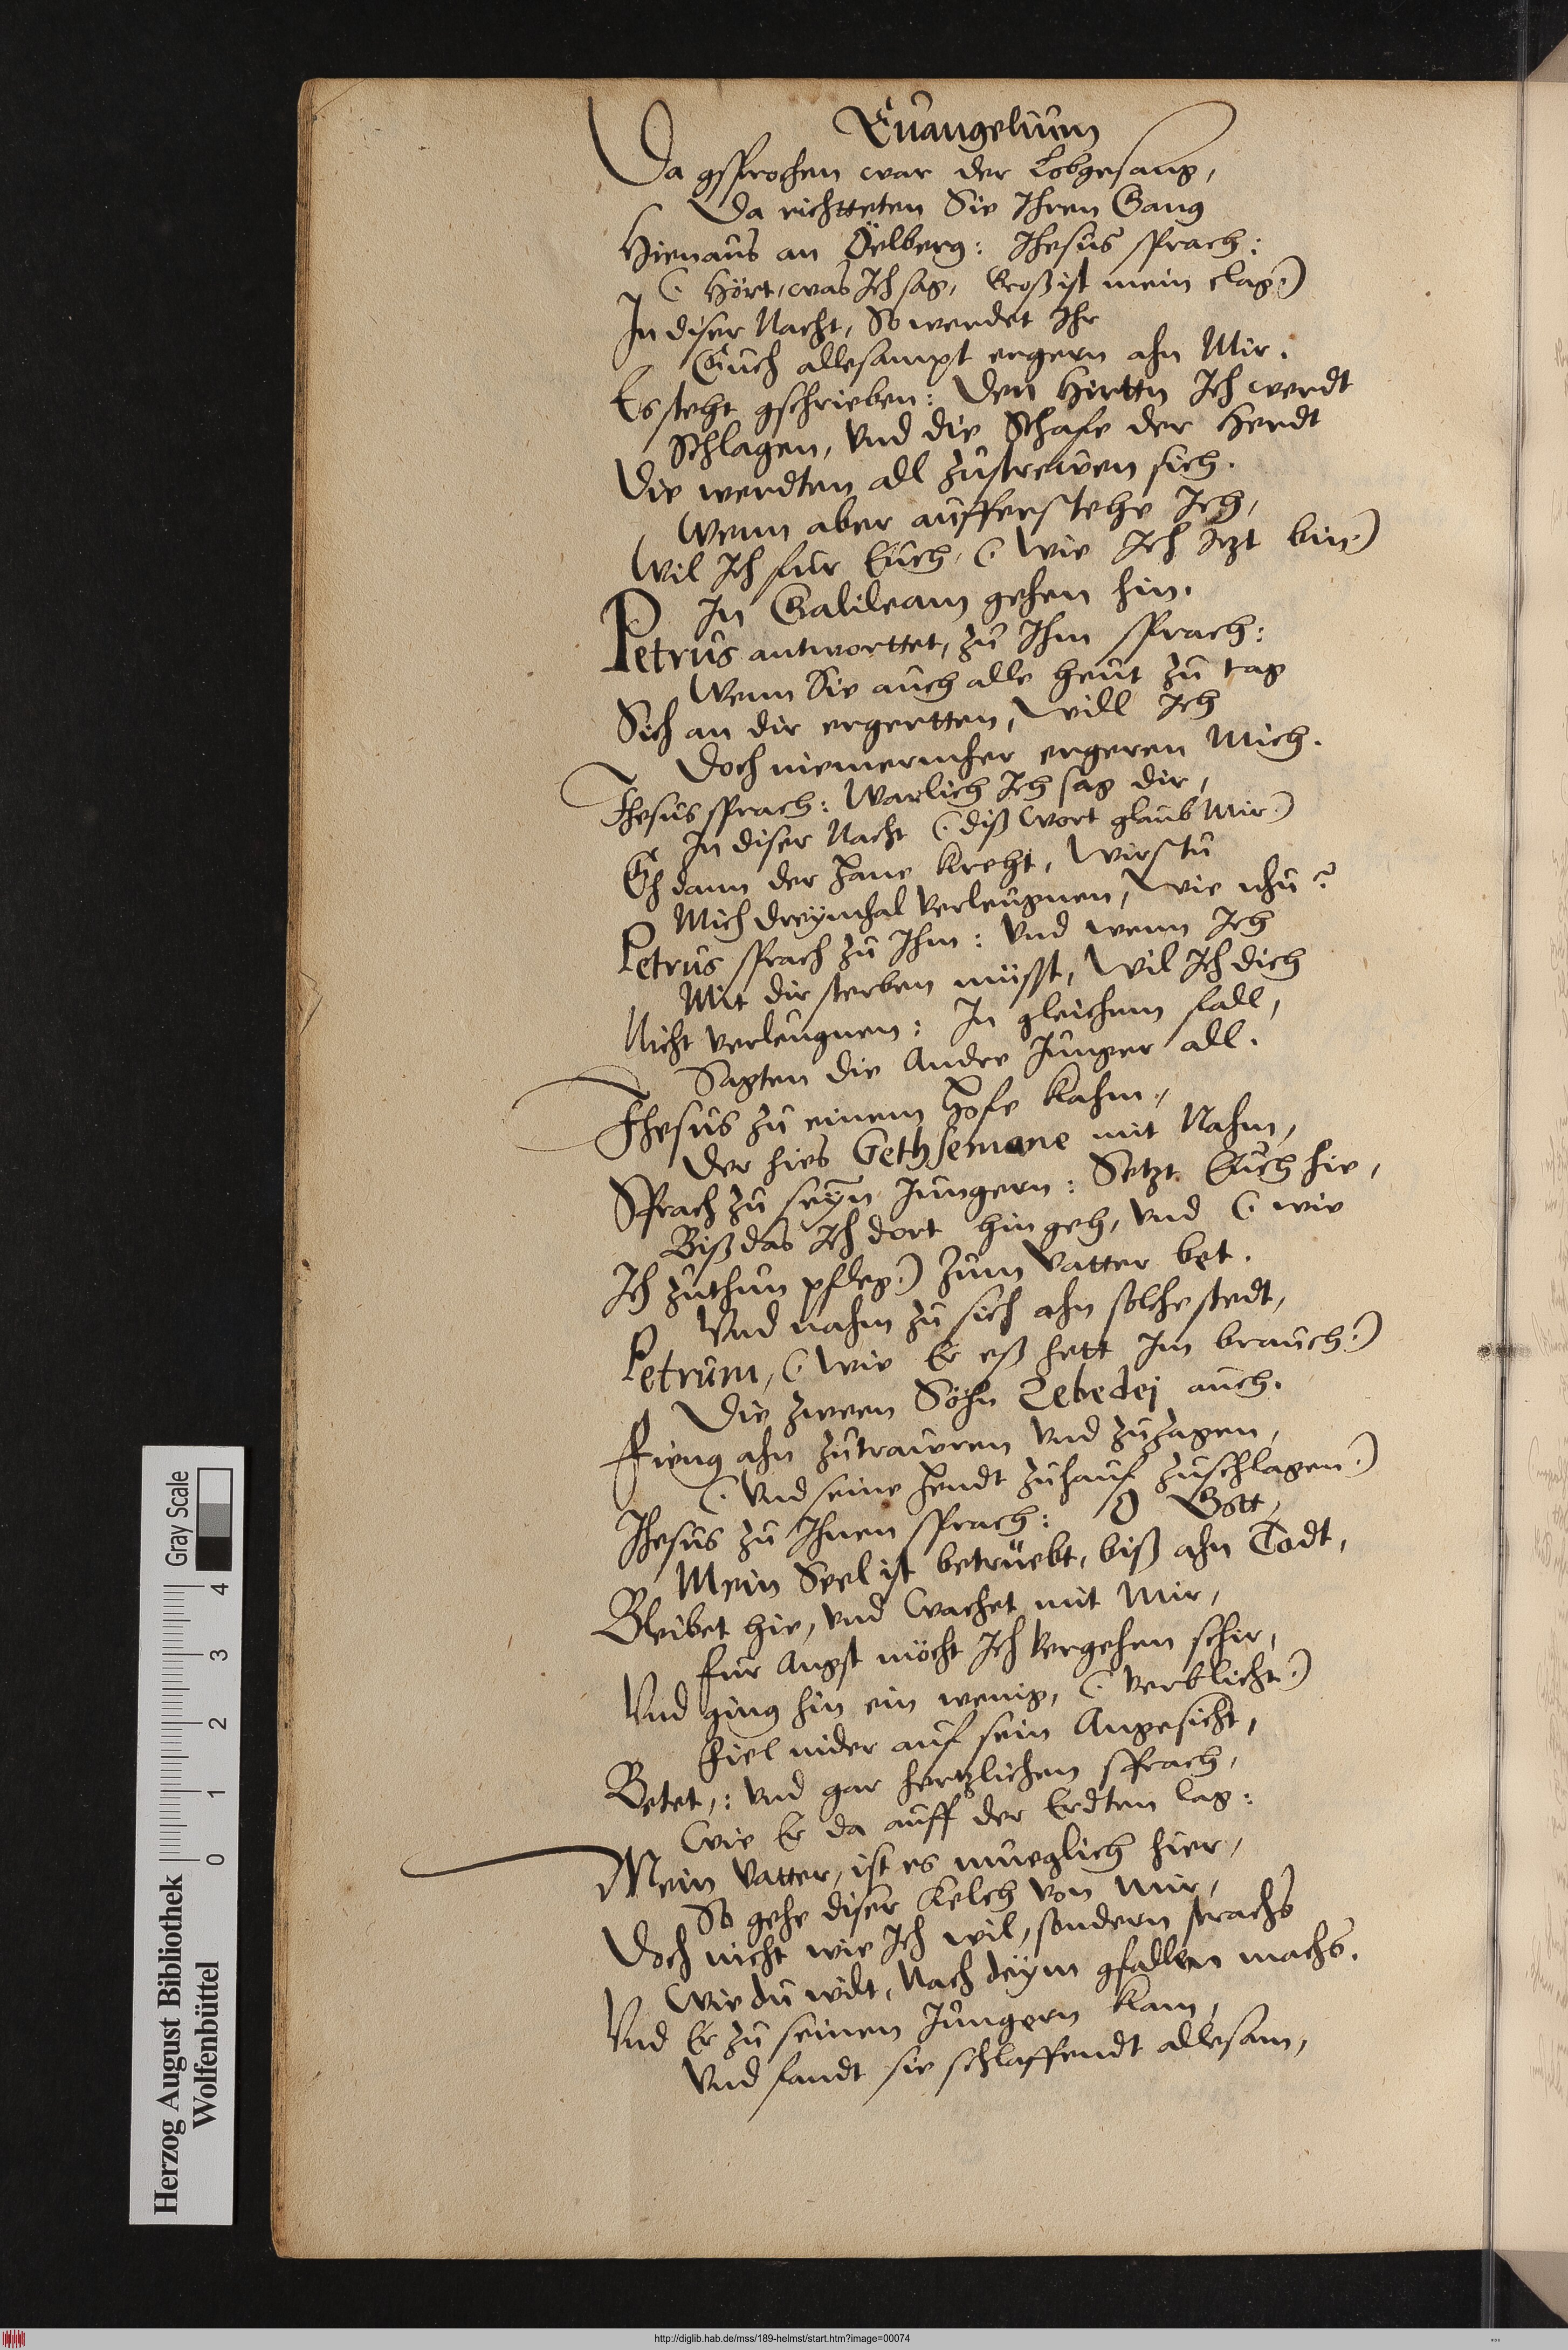 Euangelium
Da gsprochen war der Lobgesang,
Da richtteten Sie Ihren Gang
Hienaus an Öelberg: Ihesus sprach:
(: Hört, was Ich sag, Groß ist mein clag:)
In diser Nacht, So werdet Ihr
Euch allesampt ergern ahn Mir.
Es steht gschrieben: Den Hirttn Ich werdt
Schlagen, Vnd die Schafe der Herdt
Die werdten all zustrewen sich.
Wenn aber aufferstehe Ich,
Wil Ich fur Euch, (: wie Ich Itzt bin:)
In Galileam gehen hin.
Petrus antworttet, zu Ihm sprach:
Wenn Sie auch alle heut zu tag
Sich an dir ergertten, Will Ich
Doch niemermher ergeren Mich.
Ihesus sprach: Warlich Ich sag dir,
In diser Nacht (: diß Wort glaub Mir:)
Eh dann der Hane Kreht, Wirstu
Mich dreymhal Verleugnen, Wie nhu?
Petrus sprach zu Ihm: Vnd wenn Ich
Mit dir sterben müsst, Wil Ich dich
Nicht Verleugnen: In gleichem fall,
Sagten die Andre Junger all.
Ihesus zu einem Hofe Kahm,
Der hies Gethsemane mit Nahm,
Sprach zu seyn Jungern: Setzt Euch hie,
Biß das Ich dort hin geh, Vnd (: wie
Ich zuthun pfleg:) Zum Vatter bet.
Vnd nahm zu sich ahn solche stedt,
Petrum, (: Wie Er eß hett Im brauch:)
Die zween Söhn Zebedej auch.
Fieng ahn zutrawren Vnd zuzagen,
(: Vnd seine Hendt zuhauf zuschlagen:)
Ihesus zu Ihnen sprach: O Gott,
Mein Seel ist betrüebt, biß ahn Todt,
Bleibet hie, Vnd Wachet mit Mir,
Fur Angst möcht Ich Vergehen schir,
Vnd ging hin ein wenig, (: Verblicht:)
Fiel nider auf sein Angesicht,
Betet,: Vnd gar hertzlichen sprach,
Wie Er da auff der Erdten lag:
Mein Vatter, ist es mueglich hier,
So gehe diser Kelch Von Mir,
Doch nicht wie Ich wil, sondern strachs
Wie du wilt, Nach deym gfallen machs.
Vnd Er zu seinen Jungern Kam,
Vnd fandt sie schlaffendt allesam,
Herzog August Bibliothek
Wolfenbüttel
Gray Scale
0 1 2 3 4
http://diglib.hab.de/mss/189-helmst/start.htm?image=00074